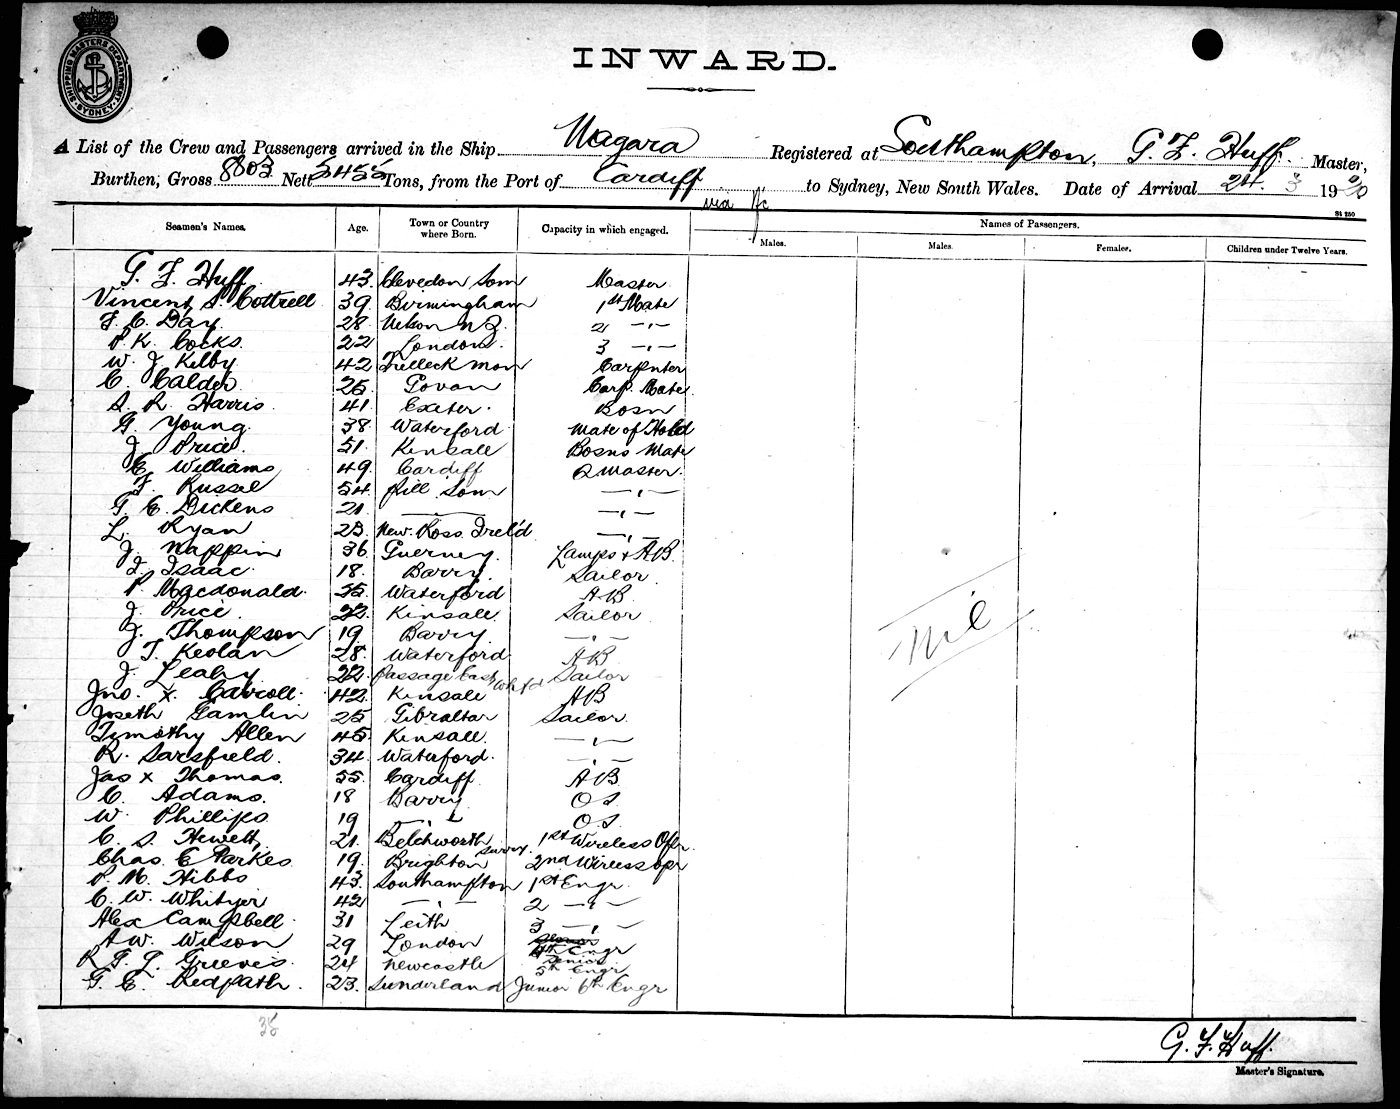 SHIPPING MASTERS DEPARTMENT SYDNEY
INWARD.
A List of the Crew and Passengers arrived in the Ship Niagara Registered at Southampton, G. F. Huff. Master,
Burthen, Gross 8803 Nett 5455 Tons, from the Port of Cardiff to Sydney, New South Wales. Date of Arrival 24. 3 1920
via
St 250
Seamen's Names. Age. Town or Country where Born. Capacity in which engaged. Names of Passengers.
Males. Males. Females. Children under Twelve Years.
G. F. Huff 43. Clevedon Som Master
Vincent S. Cottrell 39. Birmingham 1st Mate
F. C. Day. 28. Nelson N Z. 2 -"-
P. K. Cocks. 22 London. 3 -"-
W. J Kelby 42 Trelleck Mon Carpenter
C. Calder. 25 Govan Carp. Mate.
S. R. Harris. 41. Exeter. Bosn
G. Young. 38 Waterford Mate of Hold
J. Price. 51. Kinsale Bosns Mate
C. Williams 49. Cardiff Q Master.
F. Russel 54 Pill Som -"-
G. C. Dickens 21 -"- -"-
L. Ryan 23. New. Ross Irel'd -"-
J. Nappin 36 Guerney. Lamps + AB.
J. Isaac. 18. Barry. Sailor.
P. Macdonald. 55. Waterford AB
J. Price 22. Kinsale. Sailor
J. Thompson 19. Barry. -"-
T. Keolan 28. Waterford AB
J. Leahy. 22. Passage East Wtfd Sailor
Jno. x. Carroll. 42 Kinsale AB
Joseth Gamlin 25 Gibraltar Sailor.
Timothy Allen 45 Kinsall. -"-
R. Sarsfield. 34 Waterford. -"-
Jas x Thomas. 55. Cardiff. AB.
C. Adams. 18 Barry OS.
W. Phillips 19 -"- O.S.
C. S. Hewett, 21. Betchworth Surrey. 1st Wireless Opr.
Chas. E Parkes 19. Brighton 2nd Wireless opr
P. M. Hibbs 43. Southampton 1st Engr.
C. W. Whityer 42 -"- 2 -"-
Alex Campbell. 31 Leith 3 -"-
A W. Wilson 29 London 4th Engr
R G. J. Greeves. 24 Newcastle Senior 5th Engr
G. E. Redpath. 23. Sunderland Junior 6th Engr
Nil
35
G. F. Huff.
Master's Signature.